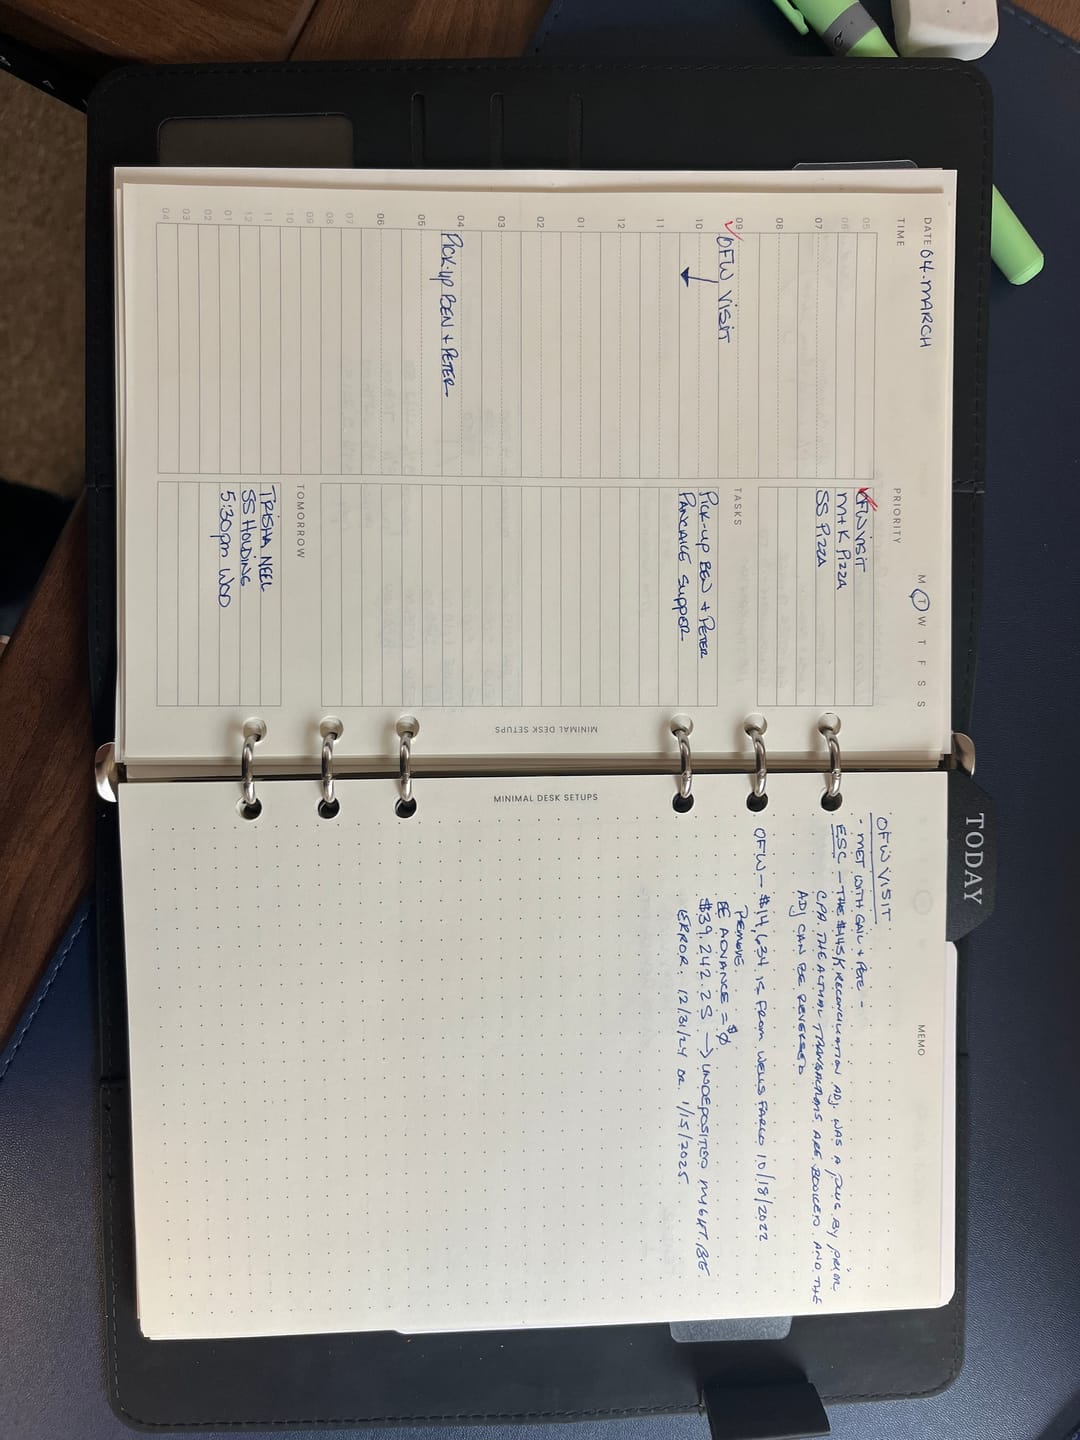 DATE 04.MARCH
M T W T F S S
TIME
PRIORITY
05
06
07
08
09
10
11
12
01
02
03
04
05
06
07
08
09
10
11
12
01
02
03
04
OFW VISIT
PICK-UP BEN + PETER
OFW VISIT
M+K PIZZA
SS PIZZA
TASKS
PICK-UP BEN + PETER
PANCAKE SUPPER
TOMORROW
TRISHA NEEL
SS HOLDING
5:30pm WOD
MINIMAL DESK SETUPS
TODAY
MEMO
OFW VISIT
- MET WITH GAIL + PETE -
ESC - THE $445K RECONCILIATION ADJ. WAS A PLUG BY PRIOR
CPA. THE ACTUAL TRANSACTIONS ARE BOOKED AND THE
ADJ CAN BE REVERSED
OFW - $14,634 IS FROM WELLS FARGO 10/18/2022
REMOVE.
EE ADVANCE = $0
$39,242.25 → UNDEPOSITED MIGHT BE
ERROR. 12/31/24 OR 1/15/2025
MINIMAL DESK SETUPS